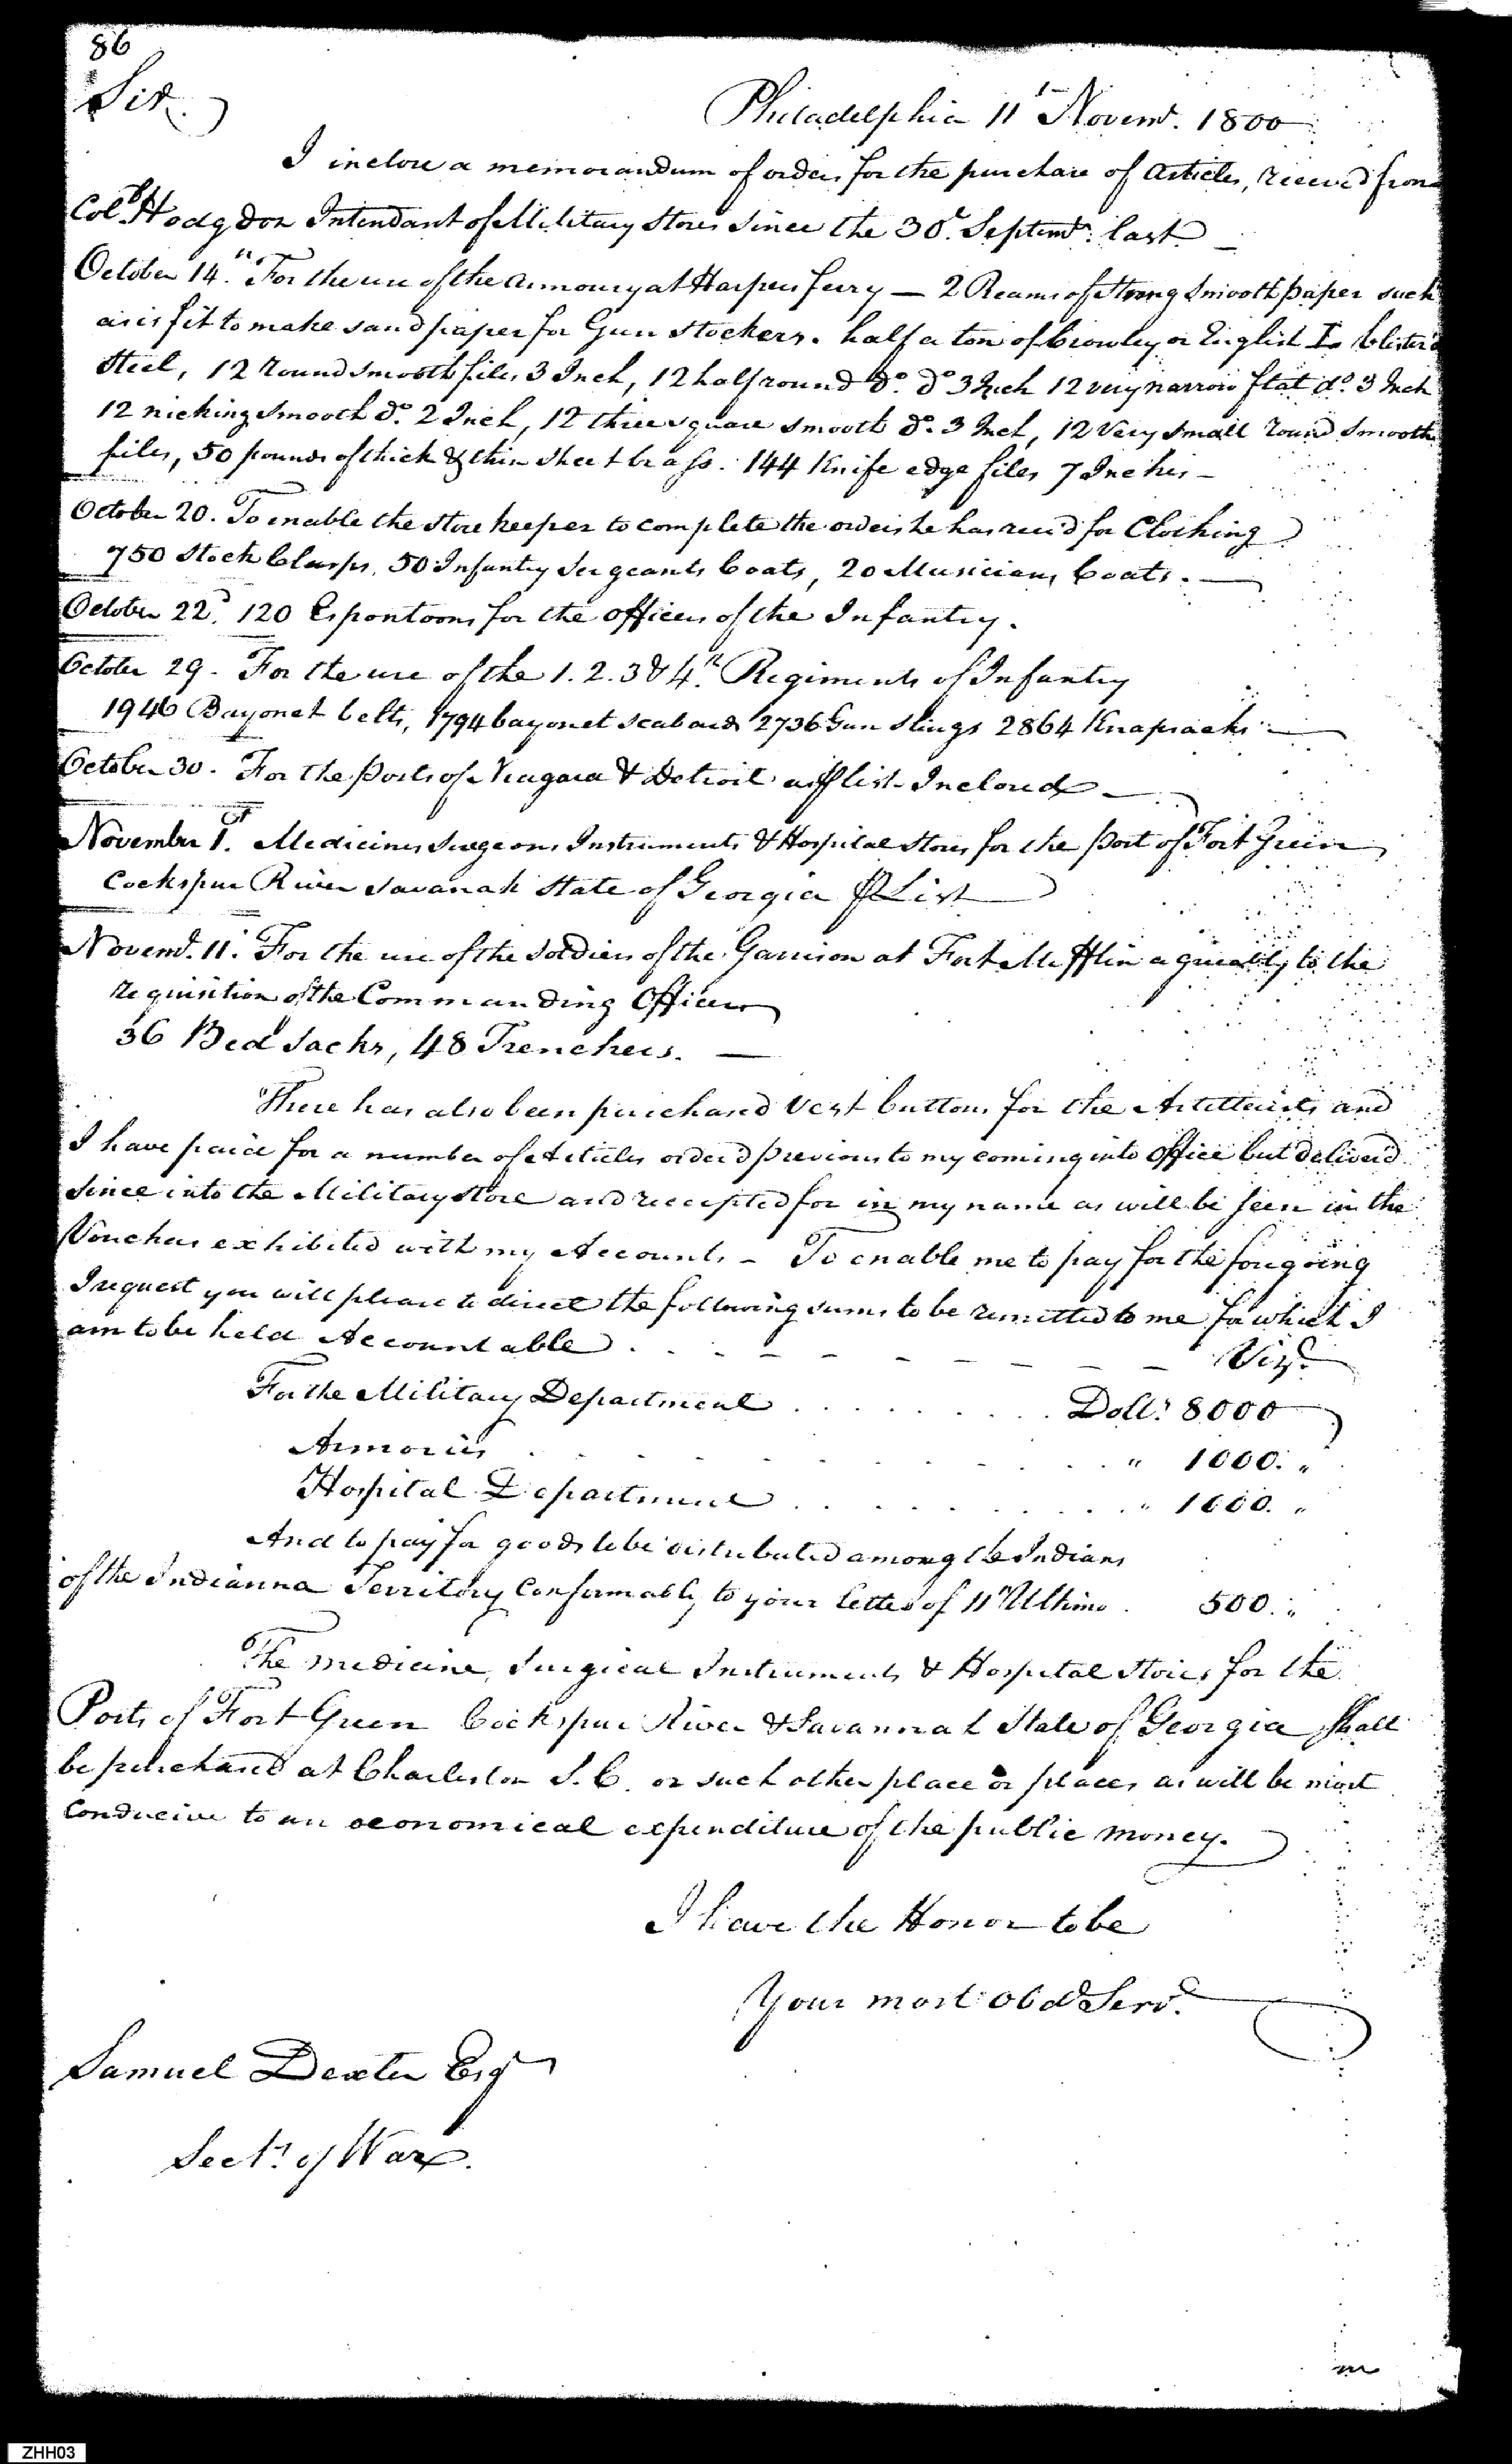 86
Sir
Philadelphia 11th Novemr. 1800
I inclose a memorandum of orders for the purchase of Articles, received from
Colo. Hodgdon Intendant of Military Stores since the 30th. Septemr. last
October 14th. For the use of the Armoury at Harpers ferry — 2 Reams of Strong Smooth paper such
as is fit to make sand paper for Gun Stockers. half a ton of Crowley or English blister'd
Steel, 12 round smooth files 3 Inch, 12 half round do. do. 3 Inch 12 very narrow flat do. 3 Inch
12 nicking smooth do. 2 Inch, 12 three square smooth do. 3 Inch, 12 Very small round smooth
files, 50 pounds of thick & thin sheet brass. 144 Knife edge files 7 Inches —
October 20. To enable the Store keeper to complete the orders he has recd for Clothing
750 Stock Clasps, 50 Infantry Sergeants Coats, 20 Musicians Coats. —
October 22d. 120 Espontoons for the officers of the Infantry.
October 29. For the use of the 1. 2. 3 & 4th. Regiments of Infantry
1946 Bayonet belts, 1794 bayonet scabards 2736 Gun Slings 2864 Knapsacks —
October 30. For the Posts of Niagara & Detroit as ⅌ list Inclosed —
November 1st. Medicines Surgeons Instruments & Hospital Stores for the Post of Fort Green
Cockspur River Savanah State of Georgia ⅌ List
Novemr. 11. For the use of the Soldiers of the Garrison at Fort Mifflin agreeably to the
requisition of the Commanding Officer
36 Bed Sacks, 48 Trenchers. —
There has also been purchased Vest buttons for the Artillerists and
I have paid for a number of Articles orderd previous to my coming into Office but deliverd
since into the Military Store and receipted for in my name as will be seen in the
Vouchers exhibited with my Accounts — To enable me to pay for the foregoing
I request you will please to direct the following sums to be remitted to me for which I
am to be held Accountable . . . — — — — — — — Vizt.
For the Military Department . . . . . . . . . Dolls. 8000
Armories . . . . . . . . . . . . " 1000. "
Hospital Department . . . . . . . . . . " 1000. "
And to pay for goods to be distributed among the Indians
of the Indianna Territory Conformably to your letter of 11th Ultimo . 500. "
The medicine, Surgical Instruments & Hospital Stores for the
Posts of Fort Green Cockspur River & Savannah State of Georgia shall
be purchased at Charleston S. C. or such other place or places as will be most
Conducive to an oeconomical expenditure of the public money.
I have the Honor to be
Your most Obd Servt.
Samuel Dexter Esqr
Secty. of War.
m
ZHH03